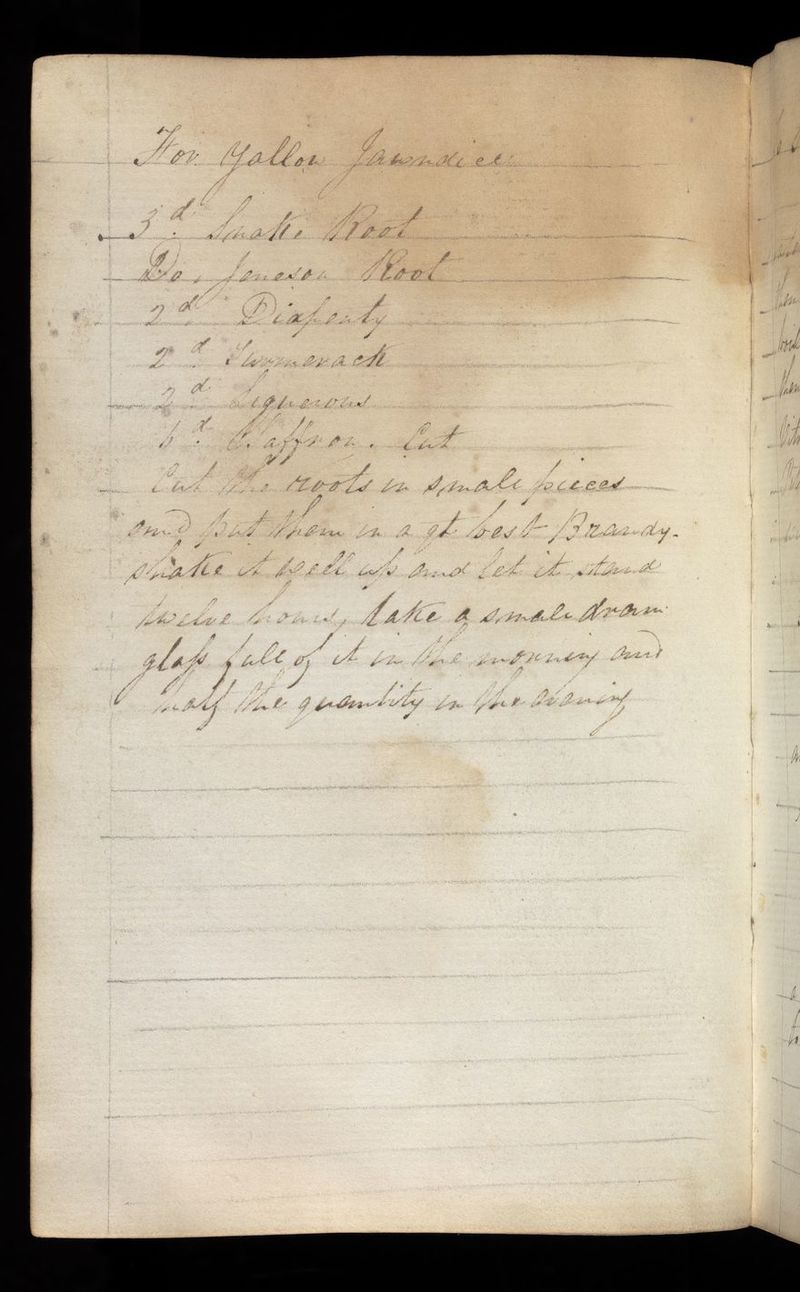 For Yallow Jawndice
3d. Snake Root
Do. Jeneson Root
2d Diapenty
2d Turmerack
2d Liquerous
6d. Saffron. Cut
Cut the roots in smale pieces
and put them in a qt best Brandy.
shake it well up and let it stand
twelve hours, take a smale dram
glass full of it in the morning and
half the quantity in the avaning